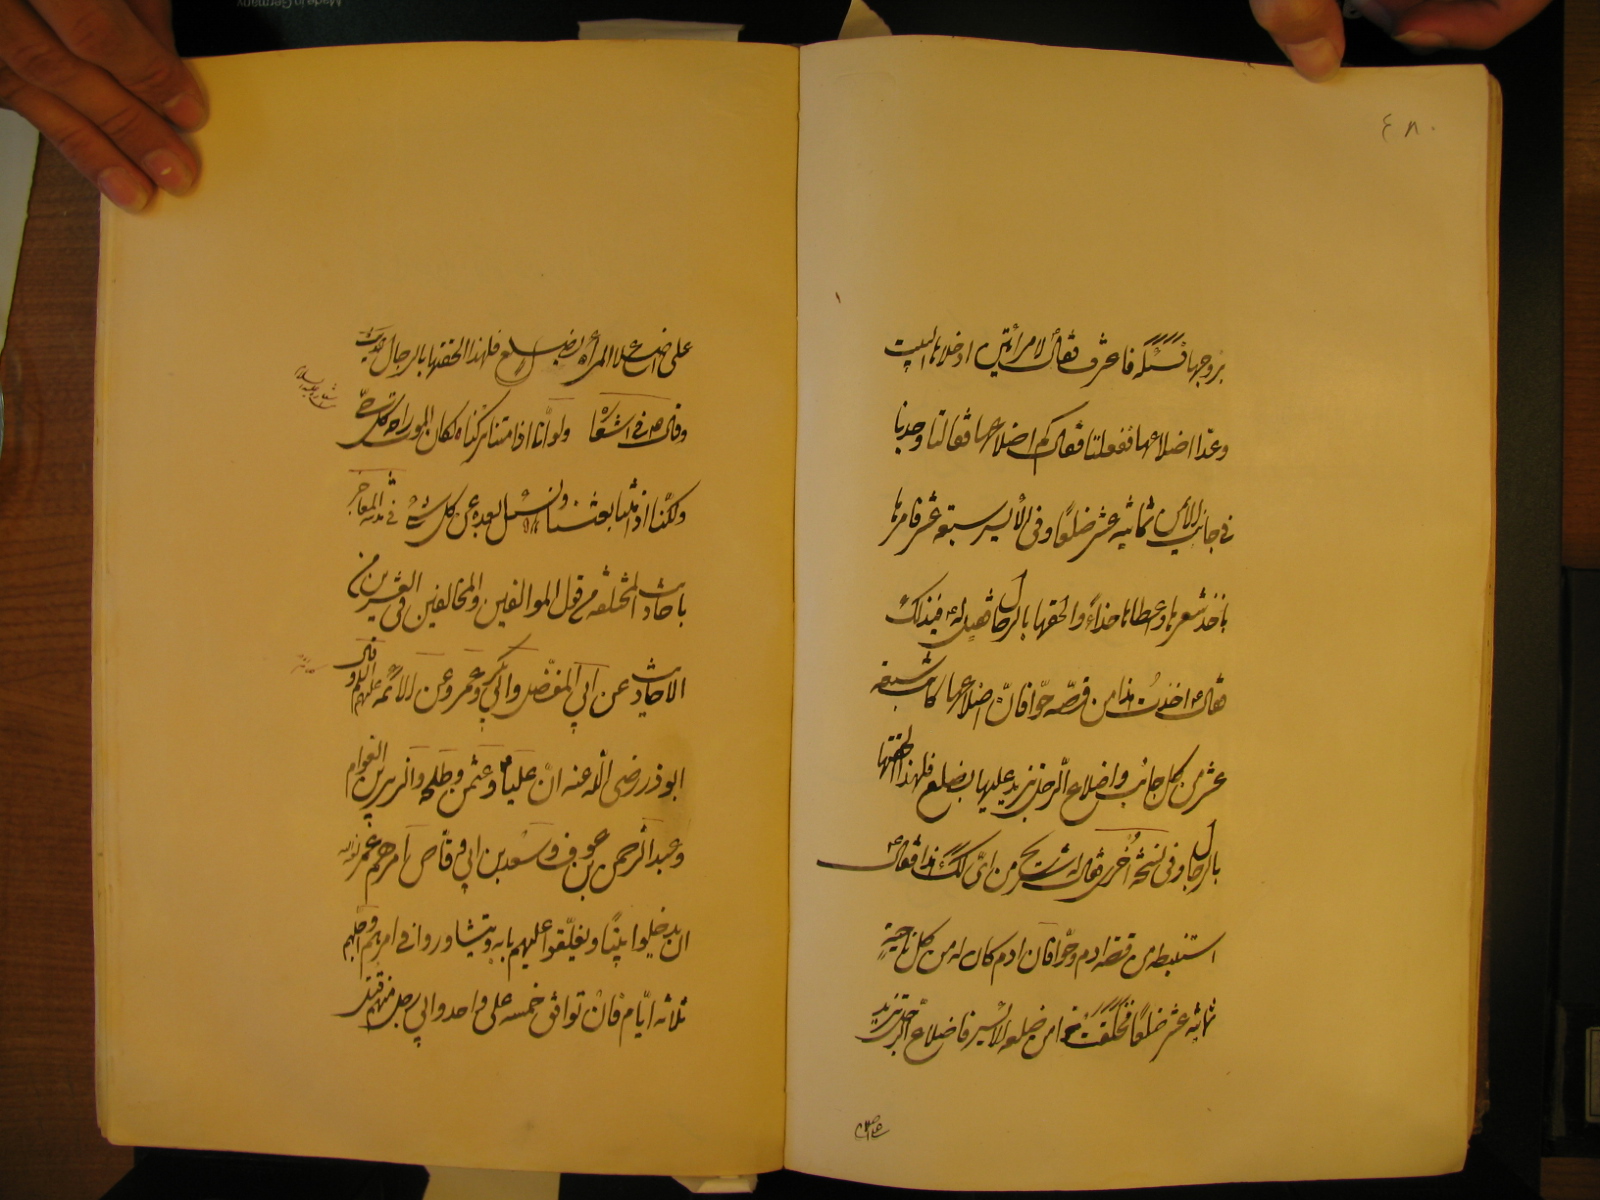 ٤٨٠
بزوجها فسئله فاعترف فقال لامرأتين ادخلاها البيت
وعدا اضلاعها ففعلتا فقال كم اضلاعها فقالتا وجدنا
في جانب الأيمن ثمانية عشر ضلعًا وفي الأيسر سبعة عشر فامر بها
باخذ شعرها واعطاها حذاءً والحقها بالرجال فقيل له في ذلك
فقال اخذت هذا من قصّة حوّا فانّ اضلاعها كانت سبعة
عشر من كل جانب واضلاع الرجل تزيد عليها بضلع فلهذا الحقتها
بالرجال وفي نسخة اُخرى فقال له شريح من اين لك هذا فقال
استنبطه من قصة ادم وحوّا فان ادم كان له من كل ناحية
ثمانية عشر ضلعًا فخلقت حوا من ضلعه الأيسر فاضلاع الرجل تزيد
على اضلاع المرأة بضلع فلهذا الحقتها بالرجال
وقال في اشعار ولو أنّا اذا متنا تركناه لكان الموت راحة كل حي
ولكنّا اذا متنا بعثنا ونسئل بعده عن كل شيء في مدينة المعاجز
باحاديث المختلفة من قول الموالفين والمخالفين في العشرين من
الاحاديث عن ابي المفضّل وعن الأئمة عليهم السلام قال
ابو ذر رضي الله عنه انّ عليا وعثمن وطلحه والزبير بن العوام
وعبد الرحمن بن عوف وسعد بن ابي وقّاص امرهم عمر
ان يدخلوا بيتًا ويغلّقوا عليهم بابه ويتشاوروا في امرهم واجلهم
ثلاثة ايّام فان توافق خمسة على واحد وابي رجل منهم قتل